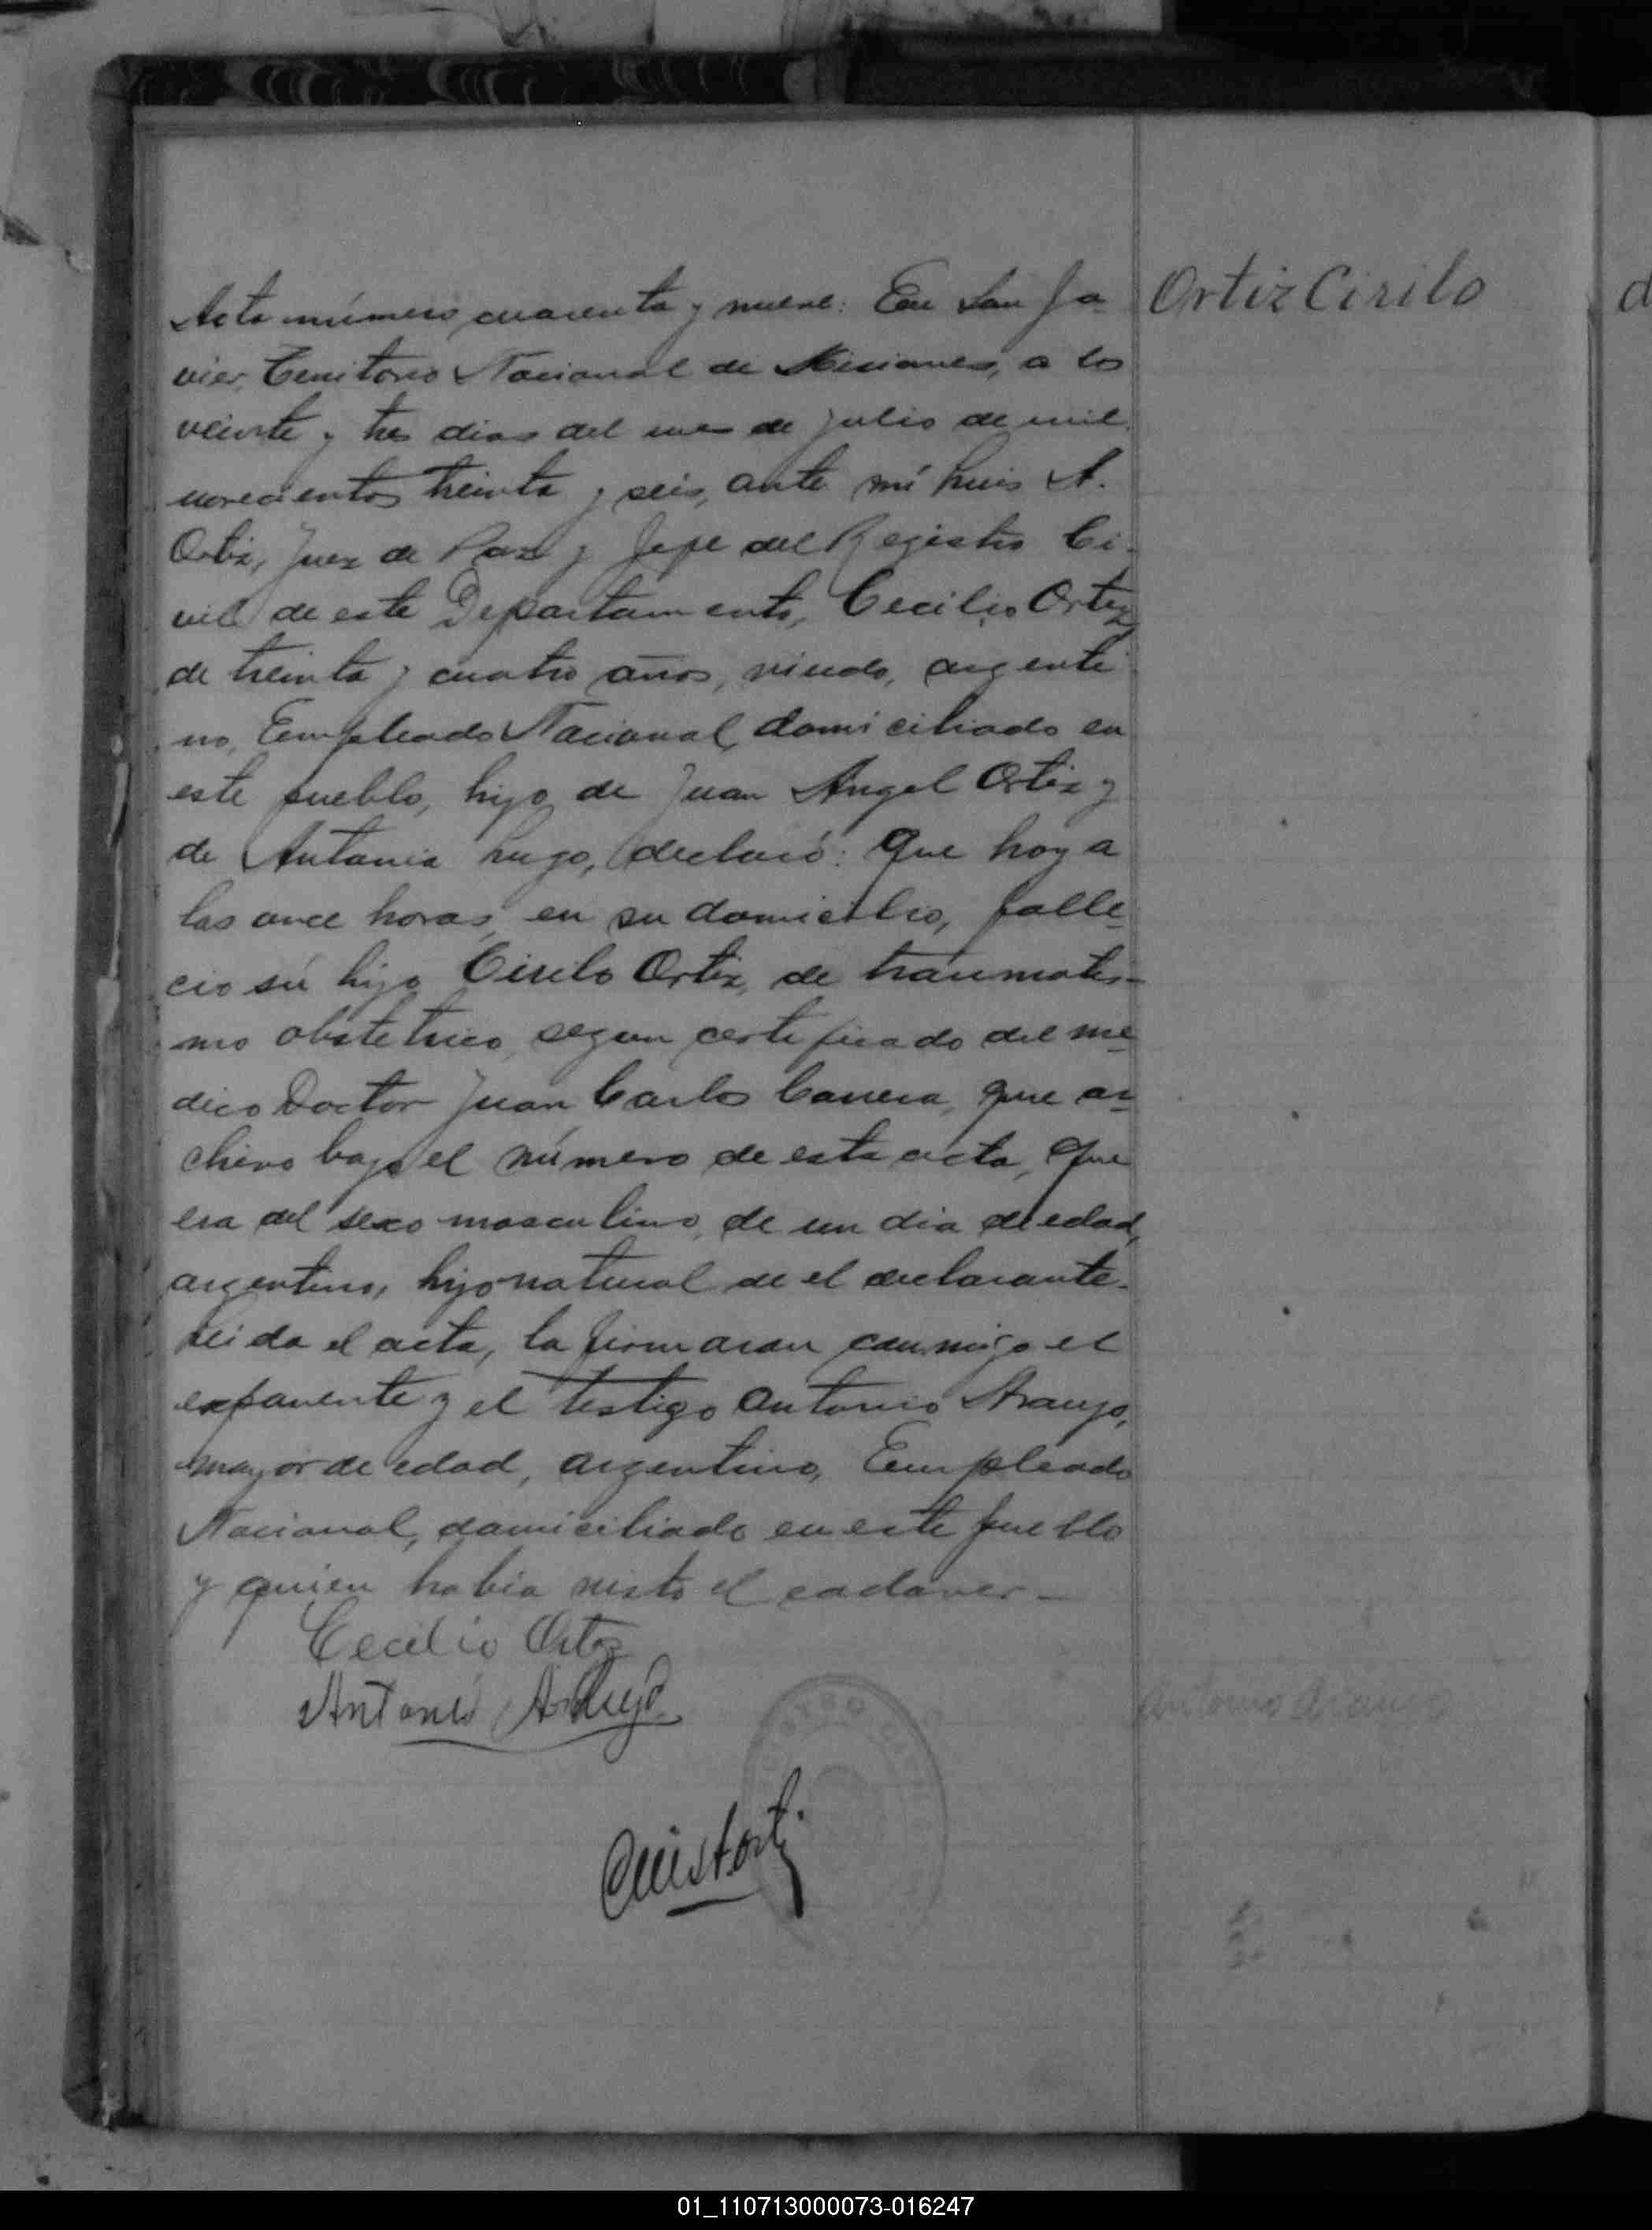 Acta número cuarenta y nueve: En San Ja-
Ortiz Cirilo
vier, Territorio Nacional de Misiones, a los
veinte y tres dias del mes de Julio de mil
novecientos treinta y seis, ante mí Luis A.
Ortiz, Juez de Paz y Jefe del Registro Ci-
vil de este Departamento, Cecilio Ortiz
de treinta y cuatro años, viudo, argenti
no, Empleado Nacional, domiciliado en
este pueblo, hijo de Juan Angel Ortiz y
de Antonia Lugo, declaró: Que hoy a
las once horas, en su domicilio, falle-
cio su hijo Cirilo Ortiz, de traumatis-
mo obstetrico, segun certificado del me-
dico Doctor Juan Carlos Carrera, que ar-
chivo bajo el número de esta acta, Que
era del sexo masculino, de un dia de edad,
argentino, hijo natural de el declarante.
Leida el acta, la firmaran conmigo el
exponente y el testigo Antonio Araujo,
mayor de edad, argentino, Empleado
Nacional, domiciliado en este pueblo
y quien habia visto el cadaver-
Cecilio Ortiz
Antonio Araujo
Antonio Araujo
01_110713000073-016247